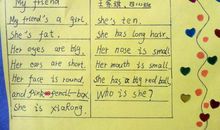 My friend
My friend's a girl,
She's ten.
She's fat.
She has long hair.
Her eyes are big.
Her nose is small.
Her ears are short.
Her mouth is small.
Her face is round,
She has a big red ball
and pink pencil-box.
Who is she?
She is xiakong.